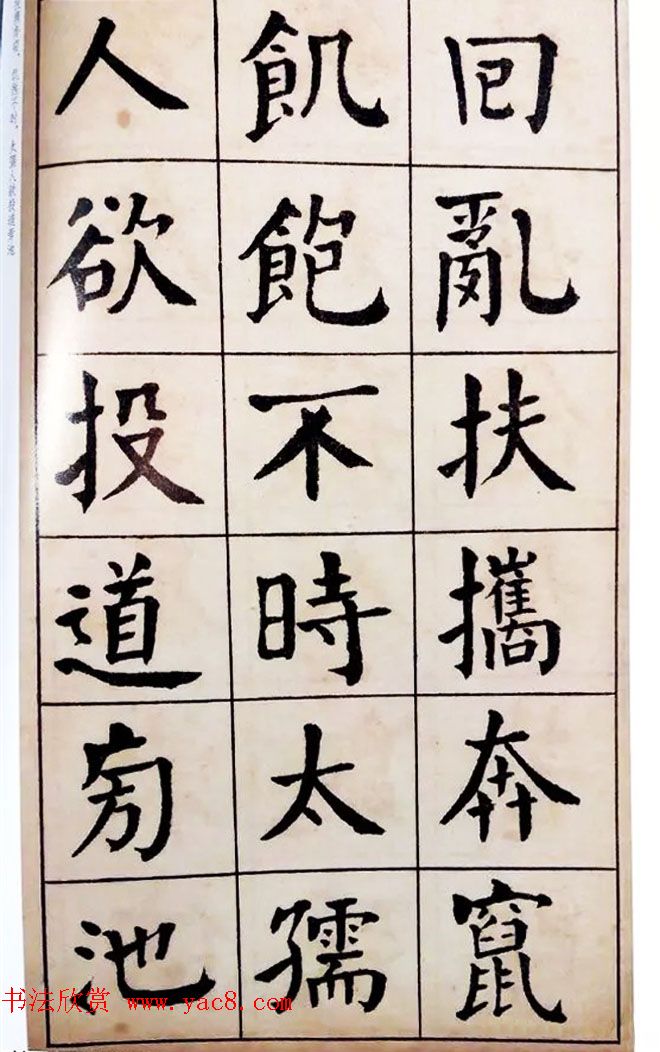 回亂扶攜奔竄
飢飽不時太孺
人欲投道旁池
扶携奔窜，饥饱不时，太孺人欲投道旁池
书法欣赏 www.yac8.com